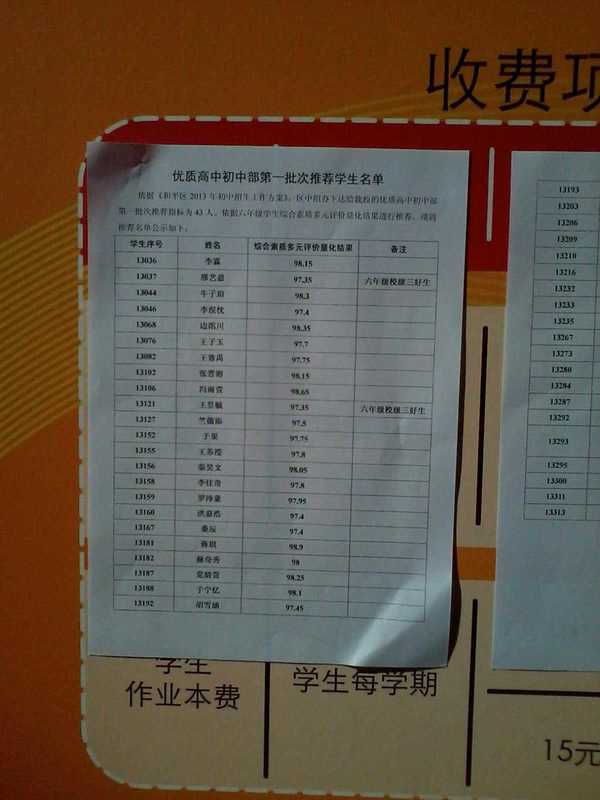 收费项
优质高中初中部第一批次推荐学生名单
依据《和平区2013年初中招生工作方案》，区中招办下达给我校的优质高中初中部
第一批次推荐指标为43人。依据六年级学生综合素质多元评价量化结果进行推荐。现将
推荐名单公示如下：
学生序号 姓名 综合素质多元评价量化结果 备注
13036 李霖 98.15
13037 97.35 六年级校级三好生
13044 牛子瑄 98.3
13046 97.4
13068 98.35
13076 王子玉 97.7
13082 97.75
13102 98.15
13106 冯雨萱 98.65
13121 王昱毓 97.35 六年级校级三好生
13127 97.5
13152 于果 97.75
13155 王苏滢 97.8
13156 秦昊文 98.05
13158 李佳奇 97.8
13159 97.95
13160 洪嘉浩 97.4
13167 秦辰 97.4
13181 98.9
13182 赫奇秀 98
13187 98.25
13188 于宁忆 98.1
13192 胡雪涵 97.45
13193
13203
13206
13209
13210
13216
13232
13233
13235
13267
13273
13280
13284
13287
13292
13293
13295
13300
13311
13313
学生
作业本费
学生每学期
15元